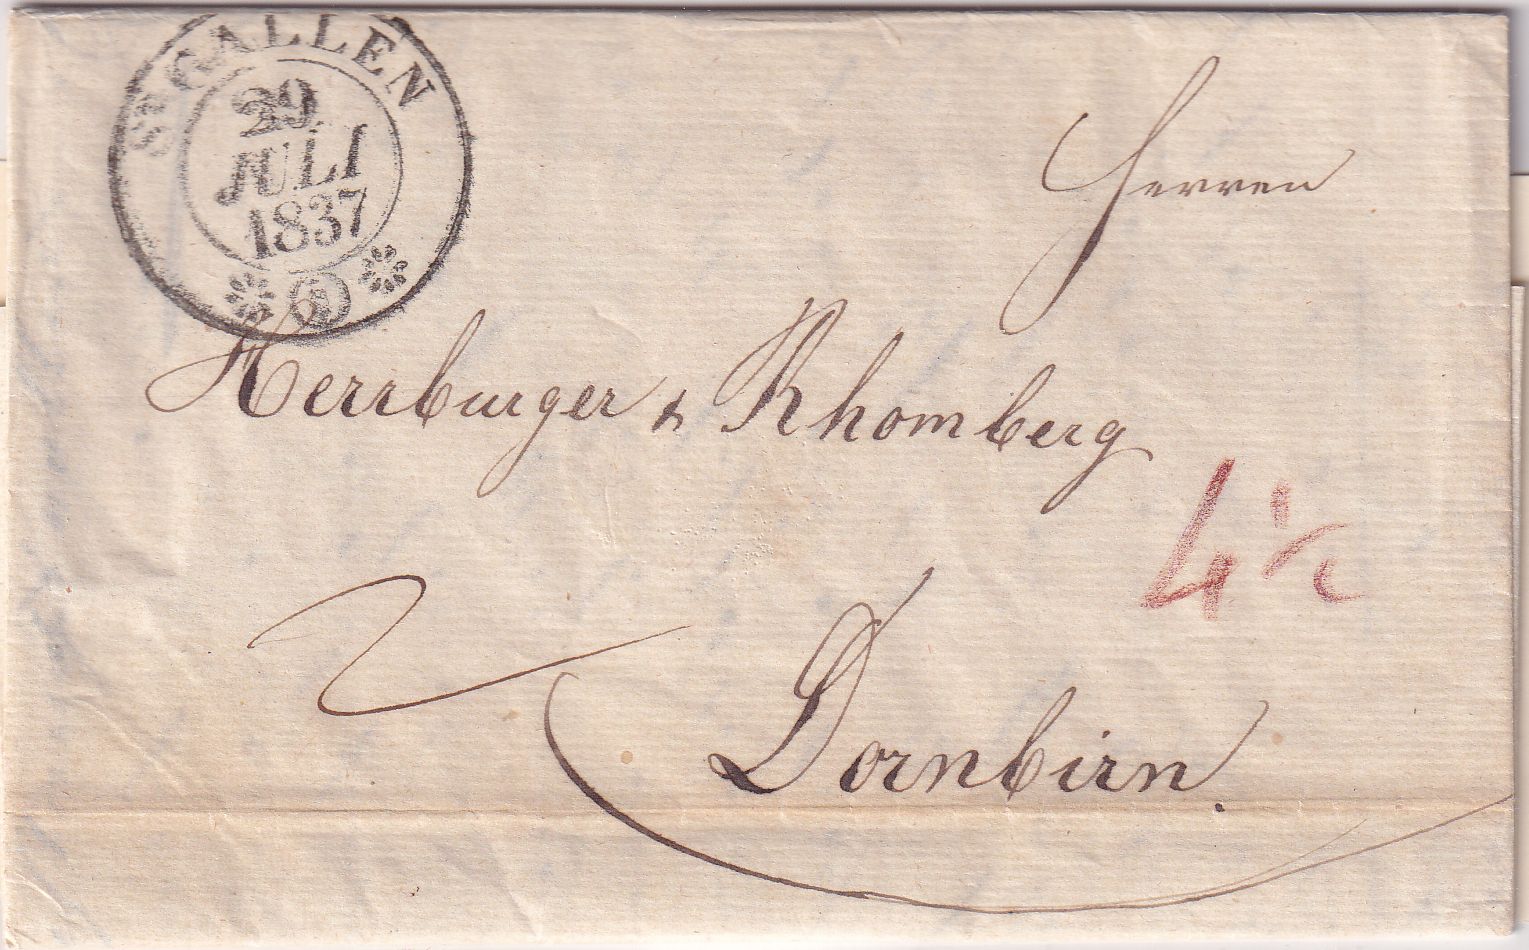 ST GALLEN
29
JULI
1837
Herren
Herrburger & Rhomberg
4 1/2
Dornbirn.